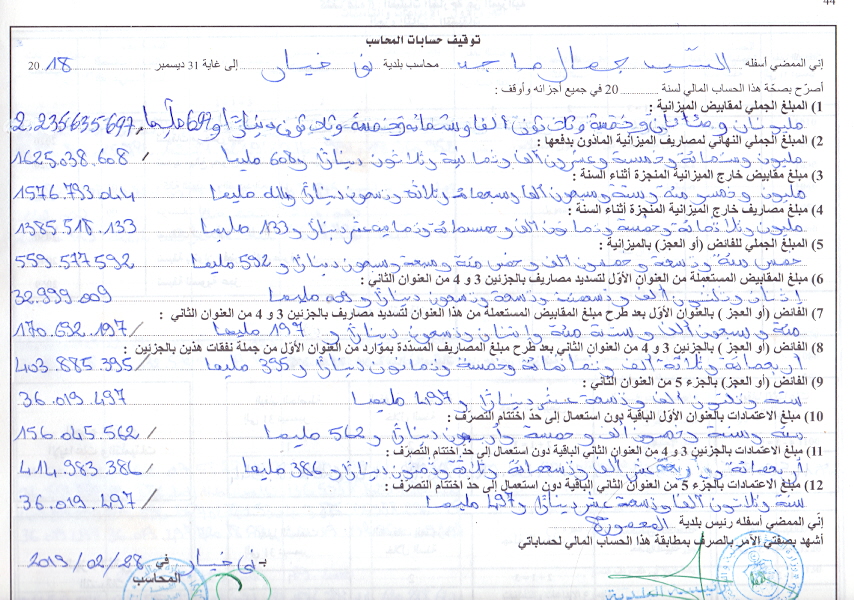 44
توقيف حسابات المحاسب
إني الممضي أسفله السيد جمال ماجد محاسب بلدية بني خيار إلى غاية 31 ديسمبر 2018
أصرّح بصحّة هذا الحساب المالي لسنة 20 في جميع أجزائه وأوقف :
1) المبلغ الجملي لمقابيض الميزانية :
مليونان و مئتان و خمسة و ثلاثون ألفا و ستمائة و خمسة و ثلاثون دينارا و 697 مليما 2.235635697
2) المبلغ الجملي النهائي لمصاريف الميزانية المأذون بدفعها :
مليون و ستمائة و خمسة و عشرون ألف و ثمانية و ثلاثون دينارا و 608 مليما 1625.038.608 /
3) مبلغ مقابيض خارج الميزانية المنجزة أثناء السنة :
مليون و خمس مئة و ستة و سبعون ألفا و سبعمائة و ثلاثة و تسعون دينارا و 044 مليما 1576.793.044
4) مبلغ مصاريف خارج الميزانية المنجزة أثناء السنة :
مليون و ثلاثمائة و خمسة و ثمانون ألف و خمسمائة و ثمانية عشر دينارا و 133 مليما 1385.518.133
5) المبلغ الجملي للفائض (أو العجز) بالميزانية :
خمس مئة و تسعة و خمسون ألف و خمس مئة و سبعة و سبعون دينارا و 592 مليما 559.577592
6) مبلغ المقابيض المستعملة من العنوان الأوّل لتسديد مصاريف بالجزئين 3 و 4 من العنوان الثاني :
و ثلاثون ألف و تسعمئة و تسعة و تسعون دينارا و 009 مليما 32.999.009
7) الفائض (أو العجز ) بالعنوان الأول بعد طرح مبلغ المقابيض المستعملة من هذا العنوان لتسديد مصاريف بالجزئين 3 و 4 من العنوان الثاني :
مئة و سبعون ألف و ستة مئة و إثنان و تسعون دينارا و 197 مليما 170.692.197 /
8) الفائض (أو العجز ) بالجزئين 3 و 4 من العنوان الثاني بعد طرح مبلغ المصاريف المسدّدة بموارد من العنوان الأوّل من جملة نفقات هذين بالجزئين :
أربعمائة و ثلاثة ألف و ثمانمائة و خمسة و ثمانون دينارا و 395 مليما 403.885.395 /
9) الفائض (أو العجز) بالجزء 5 من العنوان الثاني :
ستة و ثلاثون ألف و تسعة عشر دينارا و 497 مليما 36.019.497
10) مبلغ الاعتمادات بالعنوان الأول الباقية دون استعمال إلى حدّ اختتام التصرّف :
مئة و ستة و خمسون ألف و خمسة و أربعون دينارا و 562 مليما 156.045.562 /
11) مبلغ الاعتمادات بالجزئين 3 و 4 من العنوان الثاني الباقية دون استعمال إلى حدّ اختتام التصرّف :
أربعمائة و أربعة عشر ألف و تسعمائة و ثلاثة و ثمانون دينارا و 386 مليما 414.983.386 /
12) مبلغ الاعتمادات بالجزء 5 من العنوان الثاني الباقية دون استعمال إلى حدّ اختتام التصرف :
ستة و ثلاثون ألفا و تسعة عشر دينارا و 497 مليما 36.019.497 /
إنّي الممضي أسفله رئيس بلدية المعمورة
أشهد بصفتي الآمر بالصرف بمطابقة هذا الحساب المالي لحساباتي
بـ بني خيار في 2019/02/28
المحاسب